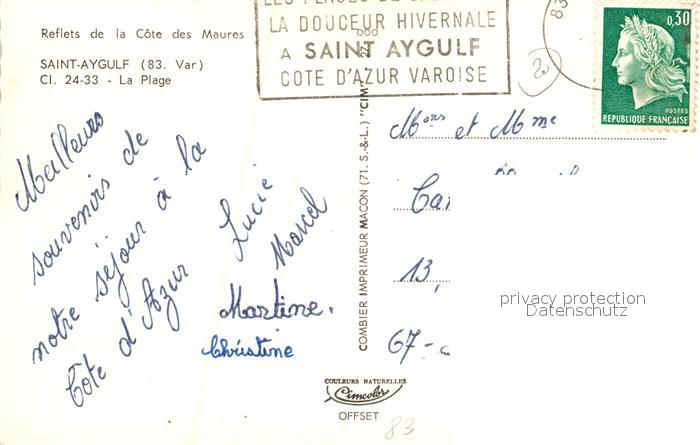 Reflets de la Côte des Maures
SAINT-AYGULF (83. Var)
Cl. 24-33 - La Plage
LA DOUCEUR HIVERNALE
A SAINT AYGULF
COTE D'AZUR VAROISE
0,30
POSTES
REPUBLIQUE FRANÇAISE
Meilleurs
souvenirs de
notre séjour à la
Côte d'Azur
Lucie
Marcel
Martine.
Christine
COMBIER IMPRIMEUR MACON (71. S.-&-L.) "CIM"
Mons et Mme
13,
67-
privacy protection
Datenschutz
COULEURS NATURELLES
Cimcolor
OFFSET
83